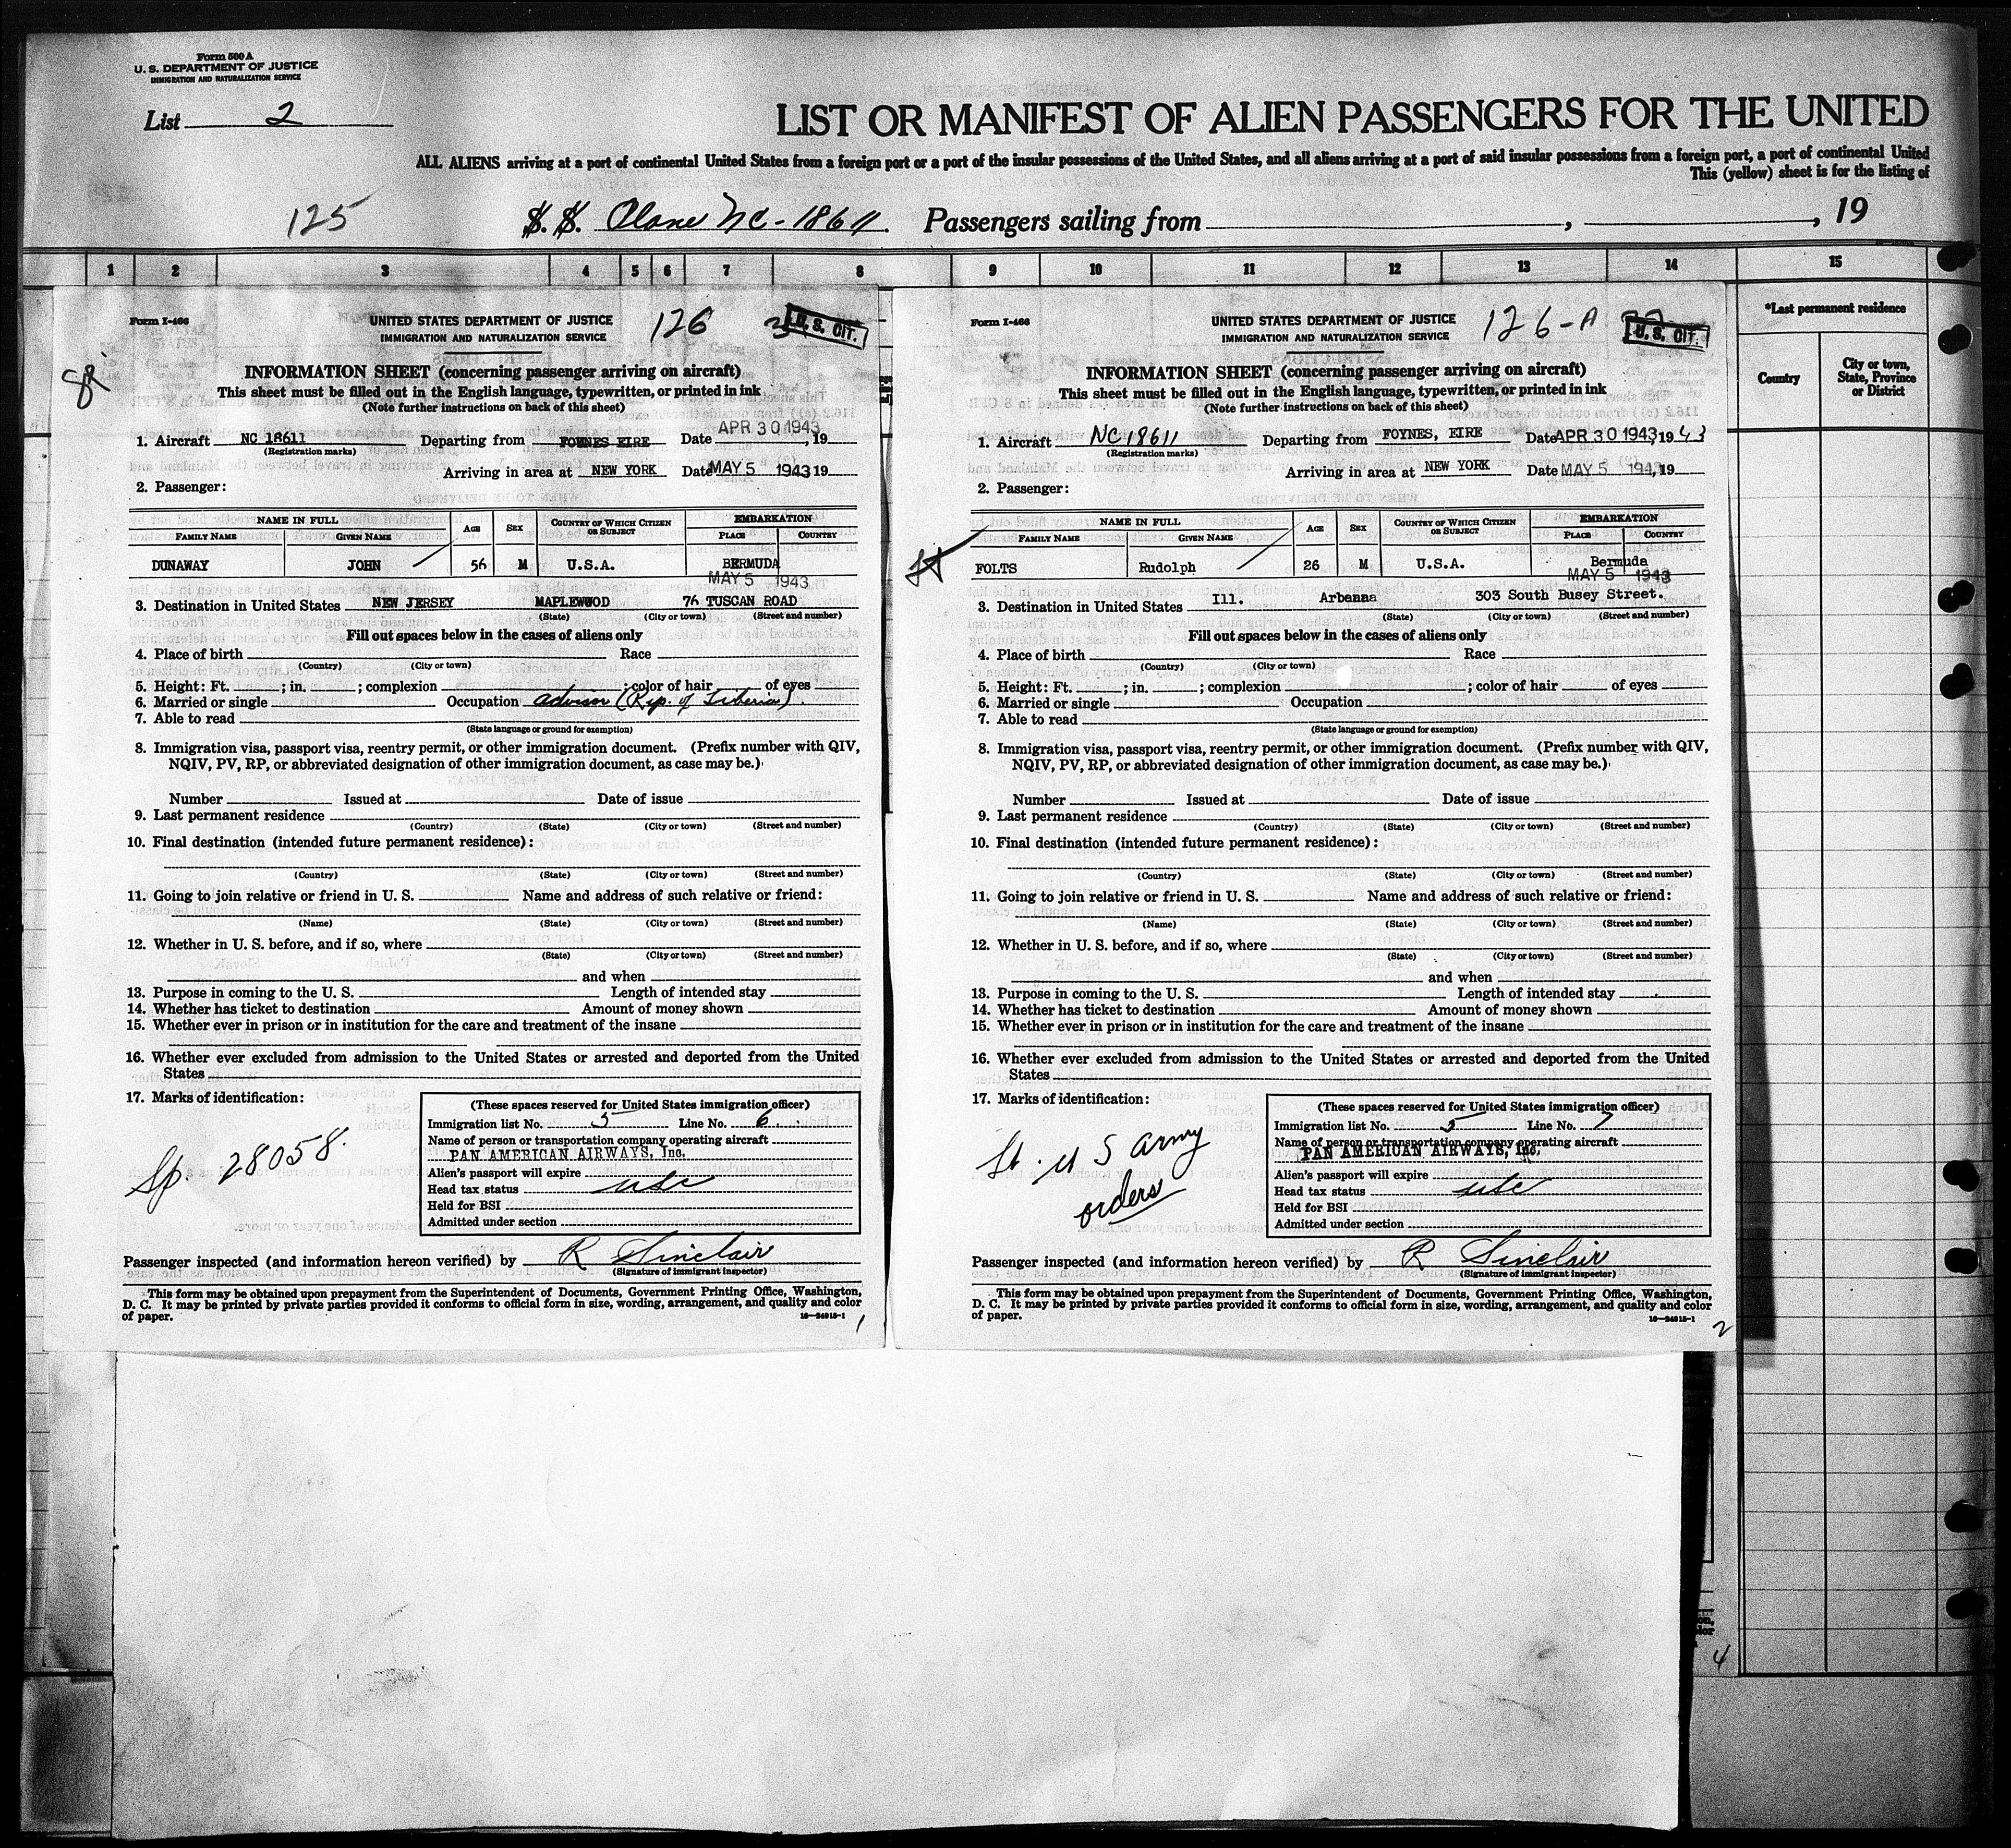 Form 500 A
U. S. DEPARTMENT OF JUSTICE
IMMIGRATION AND NATURALIZATION SERVICE
List 2
LIST OR MANIFEST OF ALIEN PASSENGERS FOR THE UNITED
ALL ALIENS arriving at a port of continental United States from a foreign port or a port of the insular possessions of the United States, and all aliens arriving at a port of said insular possessions from a foreign port, a port of continental United
This (yellow) sheet is for the listing of
125
S. S. Plane NC-18611 Passengers sailing from , , 19
1 2 3 4 5 6 7 8 9 10 11 12 13 14 15
*Last permanent residence
Country
City or town, State, Province or District
Form I-466
UNITED STATES DEPARTMENT OF JUSTICE
IMMIGRATION AND NATURALIZATION SERVICE
126
U. S. CIT.
INFORMATION SHEET (concerning passenger arriving on aircraft)
This sheet must be filled out in the English language, typewritten, or printed in ink
(Note further instructions on back of this sheet)
1. Aircraft NC 18611 Departing from FOYNES EIRE Date APR 30 1943, 19
(Registration marks)
Arriving in area at NEW YORK Date MAY 5 1943 19
2. Passenger:
NAME IN FULL AGE SEX COUNTRY OF WHICH CITIZEN OR SUBJECT EMBARKATION
FAMILY NAME GIVEN NAME PLACE COUNTRY
DUNAWAY JOHN 56 M U.S.A. BERMUDA
MAY 5 1943
3. Destination in United States NEW JERSEY MAPLEWOOD 76 TUSCAN ROAD
(State) (City or town) (Street and number)
Fill out spaces below in the cases of aliens only
4. Place of birth Race
(Country) (City or town)
5. Height: Ft. ; in. ; complexion ; color of hair of eyes
6. Married or single Occupation advisor (Rep. of Liberia).
7. Able to read
(State language or ground for exemption)
8. Immigration visa, passport visa, reentry permit, or other immigration document. (Prefix number with QIV,
NQIV, PV, RP, or abbreviated designation of other immigration document, as case may be.)
Number Issued at Date of issue
9. Last permanent residence
(Country) (State) (City or town) (Street and number)
10. Final destination (intended future permanent residence):
(Country) (State) (City or town) (Street and number)
11. Going to join relative or friend in U. S. Name and address of such relative or friend:
(Name) (State) (City or town) (Street and number)
12. Whether in U. S. before, and if so, where
(State) (City or town) (Street and number)
and when
13. Purpose in coming to the U. S. Length of intended stay
14. Whether has ticket to destination Amount of money shown
15. Whether ever in prison or in institution for the care and treatment of the insane
16. Whether ever excluded from admission to the United States or arrested and deported from the United
States
17. Marks of identification:
Sp. 28058.
(These spaces reserved for United States immigration officer)
Immigration list No. 5 Line No. 6
Name of person or transportation company operating aircraft
PAN AMERICAN AIRWAYS, Inc.
Alien's passport will expire
Head tax status usc
Held for BSI
Admitted under section
Passenger inspected (and information hereon verified) by R Sinclair
(Signature of immigrant inspector)
This form may be obtained upon prepayment from the Superintendent of Documents, Government Printing Office, Washington,
D. C. It may be printed by private parties provided it conforms to official form in size, wording, arrangement, and quality and color
of paper.
16—24915-1
1
Form I-466
UNITED STATES DEPARTMENT OF JUSTICE
IMMIGRATION AND NATURALIZATION SERVICE
126-A
U. S. CIT.
INFORMATION SHEET (concerning passenger arriving on aircraft)
This sheet must be filled out in the English language, typewritten, or printed in ink
(Note further instructions on back of this sheet)
1. Aircraft NC 18611 Departing from FOYNES, EIRE Date APR 30 1943, 1943
(Registration marks)
Arriving in area at NEW YORK Date MAY 5 1943, 19
2. Passenger:
NAME IN FULL AGE SEX COUNTRY OF WHICH CITIZEN OR SUBJECT EMBARKATION
FAMILY NAME GIVEN NAME PLACE COUNTRY
FOLTS Rudolph 26 M U.S.A. Bermuda
MAY 5 1943
3. Destination in United States Ill. Arbanna 303 South Busey Street.
(State) (City or town) (Street and number)
Fill out spaces below in the cases of aliens only
4. Place of birth Race
(Country) (City or town)
5. Height: Ft. ; in. ; complexion ; color of hair of eyes
6. Married or single Occupation
7. Able to read
(State language or ground for exemption)
8. Immigration visa, passport visa, reentry permit, or other immigration document. (Prefix number with QIV,
NQIV, PV, RP, or abbreviated designation of other immigration document, as case may be.)
Number Issued at Date of issue
9. Last permanent residence
(Country) (State) (City or town) (Street and number)
10. Final destination (intended future permanent residence):
(Country) (State) (City or town) (Street and number)
11. Going to join relative or friend in U. S. Name and address of such relative or friend:
(Name) (State) (City or town) (Street and number)
12. Whether in U. S. before, and if so, where
(State) (City or town) (Street and number)
and when
13. Purpose in coming to the U. S. Length of intended stay
14. Whether has ticket to destination Amount of money shown
15. Whether ever in prison or in institution for the care and treatment of the insane
16. Whether ever excluded from admission to the United States or arrested and deported from the United
States
17. Marks of identification:
Lt. U S Army
orders
(These spaces reserved for United States immigration officer)
Immigration list No. 5 Line No. 7
Name of person or transportation company operating aircraft
PAN AMERICAN AIRWAYS, Inc.
Alien's passport will expire
Head tax status usc
Held for BSI
Admitted under section
Passenger inspected (and information hereon verified) by R Sinclair
(Signature of immigrant inspector)
This form may be obtained upon prepayment from the Superintendent of Documents, Government Printing Office, Washington,
D. C. It may be printed by private parties provided it conforms to official form in size, wording, arrangement, and quality and color
of paper.
16—24915-1
2
4